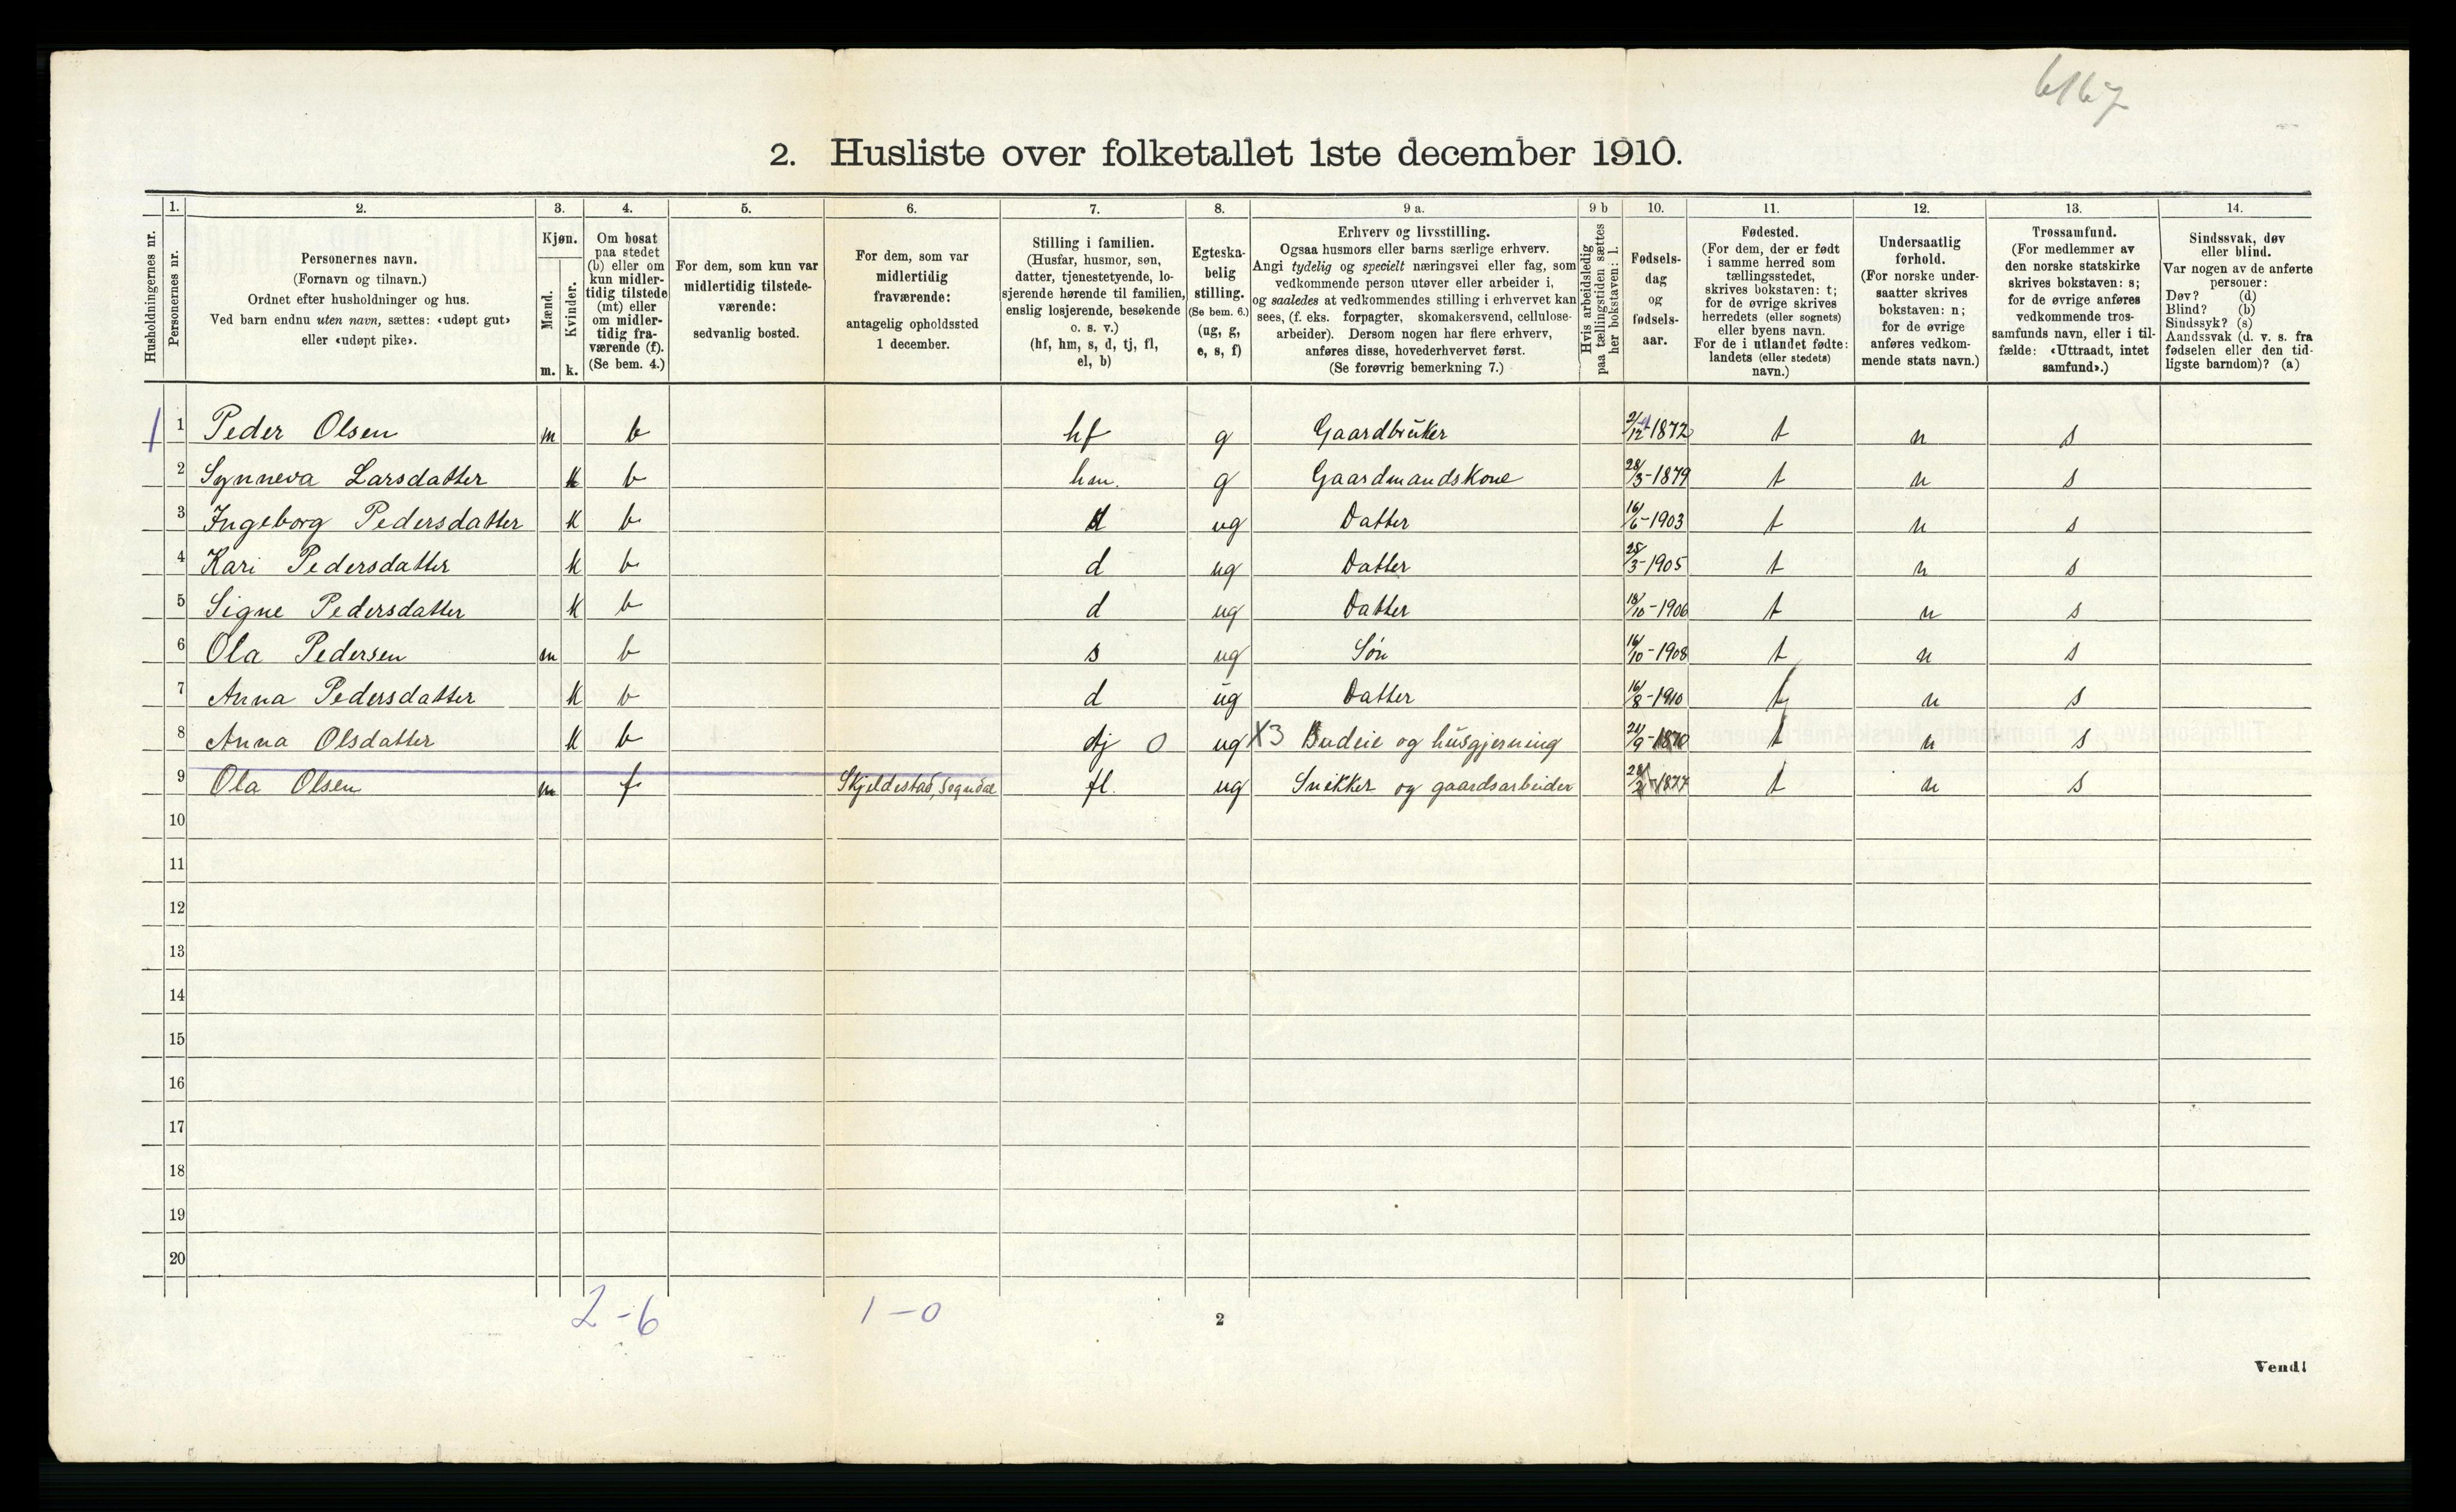 6167
2. Husliste over folketallet 1ste december 1910.
Husholdningernes nr.
1. Personernes nr.
2. Personernes navn.
(Fornavn og tilnavn.)
Ordnet efter husholdninger og hus.
Ved barn endnu uten navn, sættes: «udøpt gut»
eller «udøpt pike».
3. Kjøn.
Mænd. m.
Kvinder. k.
4. Om bosat
paa stedet
(b) eller om
kun midler-
tidig tilstede
(mt) eller
om midler-
tidig fra-
værende (f).
(Se bem. 4.)
5. For dem, som kun var
midlertidig tilstede-
værende:
sedvanlig bosted.
6. For dem, som var
midlertidig
fraværende:
antagelig opholdssted
1 december.
7. Stilling i familien.
(Husfar, husmor, søn,
datter, tjenestetyende, lo-
sjerende hørende til familien,
enslig losjerende, besøkende
o. s. v.)
(hf, hm, s, d, tj, fl,
el, b)
8. Egteska-
belig
stilling.
(Se bem. 6.)
(ug, g,
e, s, f)
9 a. Erhverv og livsstilling.
Ogsaa husmors eller barns særlige erhverv.
Angi tydelig og specielt næringsvei eller fag, som
vedkommende person utøver eller arbeider i,
og saaledes at vedkommendes stilling i erhvervet kan
sees, (f. eks. forpagter, skomakersvend, cellulose-
arbeider). Dersom nogen har flere erhverv,
anføres disse, hovederhvervet først.
(Se forøvrig bemerkning 7.)
9 b Hvis arbeidsledig
paa tællingstiden sættes
her bokstaven: l.
10. Fødsels-
dag
og
fødsels-
aar.
11. Fødested.
(For dem, der er født
i samme herred som
tællingsstedet,
skrives bokstaven: t;
for de øvrige skrives
herredets (eller sognets)
eller byens navn.
For de i utlandet fødte:
landets (eller stedets)
navn.)
12. Undersaatlig
forhold.
(For norske under-
saatter skrives
bokstaven: n;
for de øvrige
anføres vedkom-
mende stats navn.)
13. Trossamfund.
(For medlemmer av
den norske statskirke
skrives bokstaven: s;
for de øvrige anføres
vedkommende tros-
samfunds navn, eller i til-
fælde: «Uttraadt, intet
samfund».)
14. Sindssvak, døv
eller blind.
Var nogen av de anførte
personer:
Døv? (d)
Blind? (b)
Sindssyk? (s)
Aandssvak (d. v. s. fra
fødselen eller den tid-
ligste barndom)? (a)
1 1 Peder Olsen m b hf g Gaardbruker 1872 t n s
2 Synneva Larsdatter k b hm. g Gaardmandskone 28/3-1879 t n s
3 Ingeborg Pedersdatter k b d ug Datter 16/6-1903 t n s
4 Kari Pedersdatter k b d ug Datter 25/3-1905 t n s
5 Signe Pedersdatter k b d ug Datter 18/10-1906 t n s
6 Ola Pedersen m b s ug Søn 16/10-1908 t n s
7 Anna Pedersdatter k b d ug Datter 16/8-1910 t n s
8 Anna Olsdatter k b tj 0 ug X3 Budeie og husgjerning 1870 t n s
9 Ola Olsen m f Skjeldestad, Sogndal fl. ug Snekker og gaardsarbeider 1877 t n s
10
11
12
13
14
15
16
17
18
19
20
2-6 1-0
2
Vend!